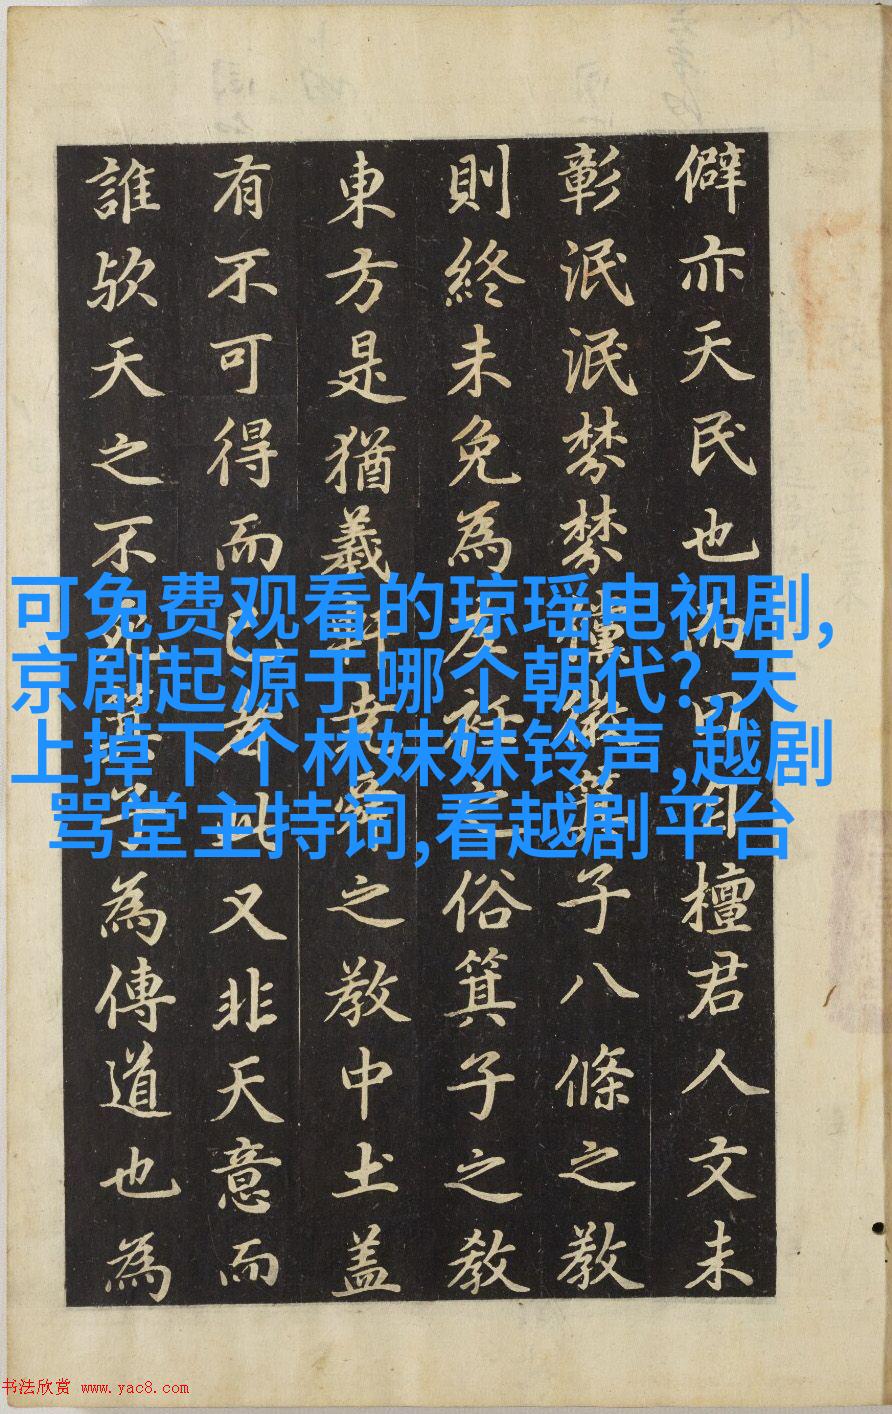 僻亦天民也而自檀君人文未
彰泯泯棼棼微箕子八條之教
則終未免為左衽之俗箕子之教
東方是猶羲軒堯舜之教中土盖
有不可得而已者此又非天意而
誰欤天之不死箕子為傳道也為
可免费观看的琼瑶电视剧,
京剧起源于哪个朝代?,天
上掉下个林妹妹铃声,越剧
骂堂主持词,看越剧平台
书法欣赏 www.yac8.com